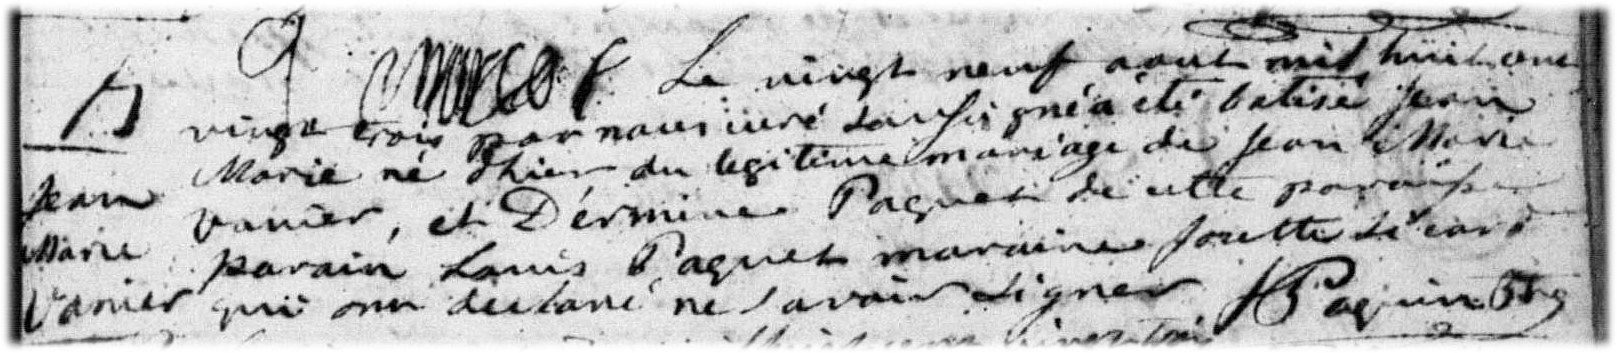 B
Jean
Marie
Vanier
Le vingt neuf aout mil huit cent
vingt trois par nous curé sousigné a été batisé Jean
Marie né Ihier du legitime mariage de Jean Marie
Vanier, et Dérmine Paquet de cette paroisse
parain Louis Paquet maraine
qui onn declaré ne savoir signer Paquin Ptre